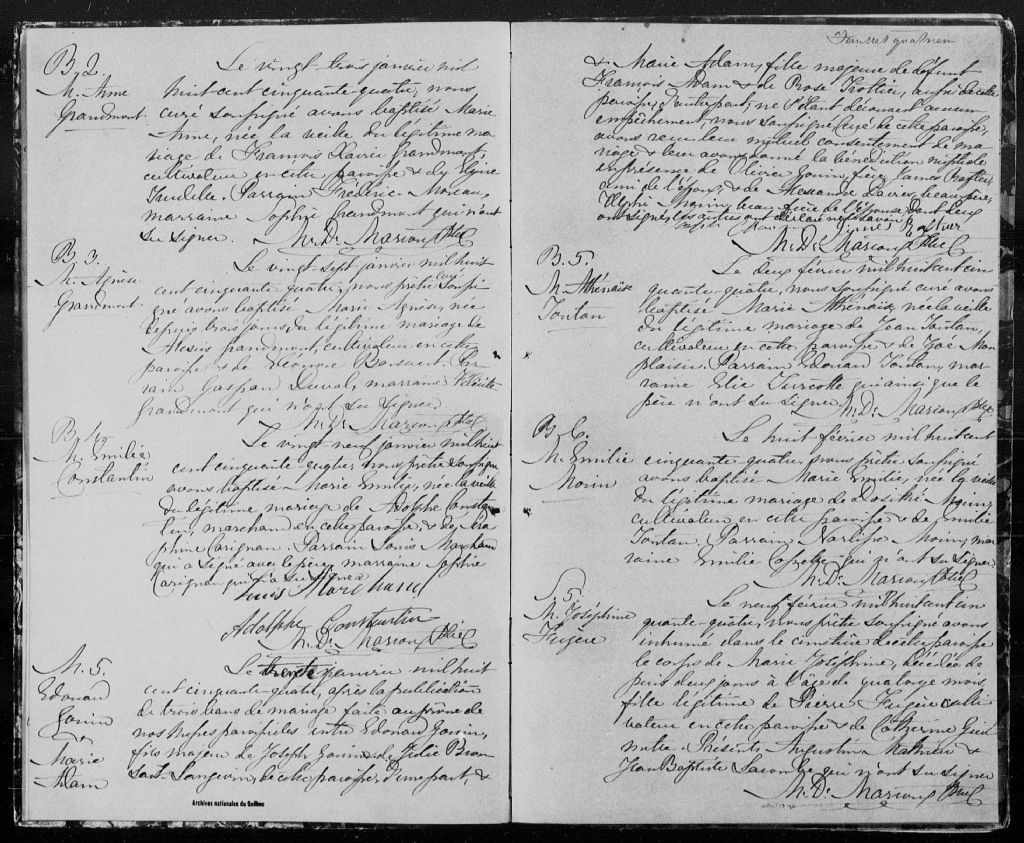 B. 2.
M. Anne
Grandmont
Le vingt-trois janvier mil
huit cent cinquante quatre, nous
curé soussigné avons baptisé Marie
Anne, née la veille du légitime ma
riage de François Xavier Grandmont,
cultivateur en cette paroisse & de
Parrain Frédéric Moreau,
marraine Sophie Grandmont qui n'ont
su signer. M. D. Marion Ptre
B. 3.
M. Agnèse
Grandmont
Le vingt-sept janvier mil huit
cent cinquante quatre, nous prêtre curé soussi
gné avons baptisé Marie Agnèse, née
depuis trois jours, du légitime mariage de
Alexis Grandmont, cultivateur en cette
paroisse & de Eléonore Par
rain Gaspar Duval, marraine
Grandmont qui n'ont su signer.
M. D. Marion Ptre
B. 4.
M. Emilie
Constantin
Le vingt neuf janvier mil huit
cent cinquante-quatre, nous prêtre soussigné
avons baptisé Marie Emilie, née la veille
du légitime mariage de Adolphe Constan
tin, marchand en cette paroisse & de Séra
phine Carignan. Parrain Louis Marchand
qui a signé avec le père, marraine Sophie
Carignan qui n'a su signer
Louis Marchand
Adolphe Constantin
M. D. Marion Ptre
M. 5
Edouard
Gouin
&
Marie
Adam
Le trente janvier mil huit
cent cinquante quatre, après la publication
de trois bans de mariage faite au prône de
nos messes paroissiales entre Edouard Gouin,
fils majeur de Joseph Gouin & de Julie Bron
sard Langevin, de cette paroisse, d'une part, &
Archives nationales du Québec
& Marie Adam, fille majeure de défunt
François Adam & de Rose Trottier, aussi de cette
paroisse, d'autre part; ne s'étant découvert aucun
empêchement, nous soussigné Curé de cette paroisse,
avons reçu leur mutuel consentement de ma
riage & leur avons donné la bénédiction nuptiale
en présence de Olivier Gouin, frère, James
ami de l'époux, & de Alexandre beau père,
Morin, beau frère de l'épouse dont deux
ont signé, les autres ont déclaré ne le savoir.
M. D. Marion Ptre
B. 5.
M. Athénaïse
Toutan
Le deux février mil huit cent cin
quante-quatre, nous soussigné curé avons
baptisé Marie Athénaïse née la veille
du légitime mariage de Jean Toutan,
cultivateur en cette paroisse & de Zoé Mon
plaisir. Parrain Edouard Toutan, mar
raine Elie Turcotte qui ainsi que le
père n'ont su signer. M. D. Marion Ptre
B. 6.
M. Emilie
Morin
Le huit février mil huit cent
cinquante-quatre, nous prêtre soussigné
avons baptisé Marie Emilie, née la veille
du légitime mariage de Morin,
cultivateur en cette paroisse & de Emilie
Toutan. Parrain Narcisse Morin, mar
raine Emilie qui n'ont su signer
M. D. Marion Ptre
S. 5.
M. Joséphine
Fugère
Le neuf février mil huit cent cin
quante-quatre, nous prêtre soussigné avons
inhumé dans le cimetière de cette paroisse
le corps de Marie Joséphine, décédée de
puis deux jours à l'âge de quatorze mois,
fille légitime de Pierre Fugère culti
vateur en cette paroisse & de Catherine Guil
mette. Présents Augustin Mathieu &
Jean Baptiste qui n'ont su signer
M. D. Marion Ptre